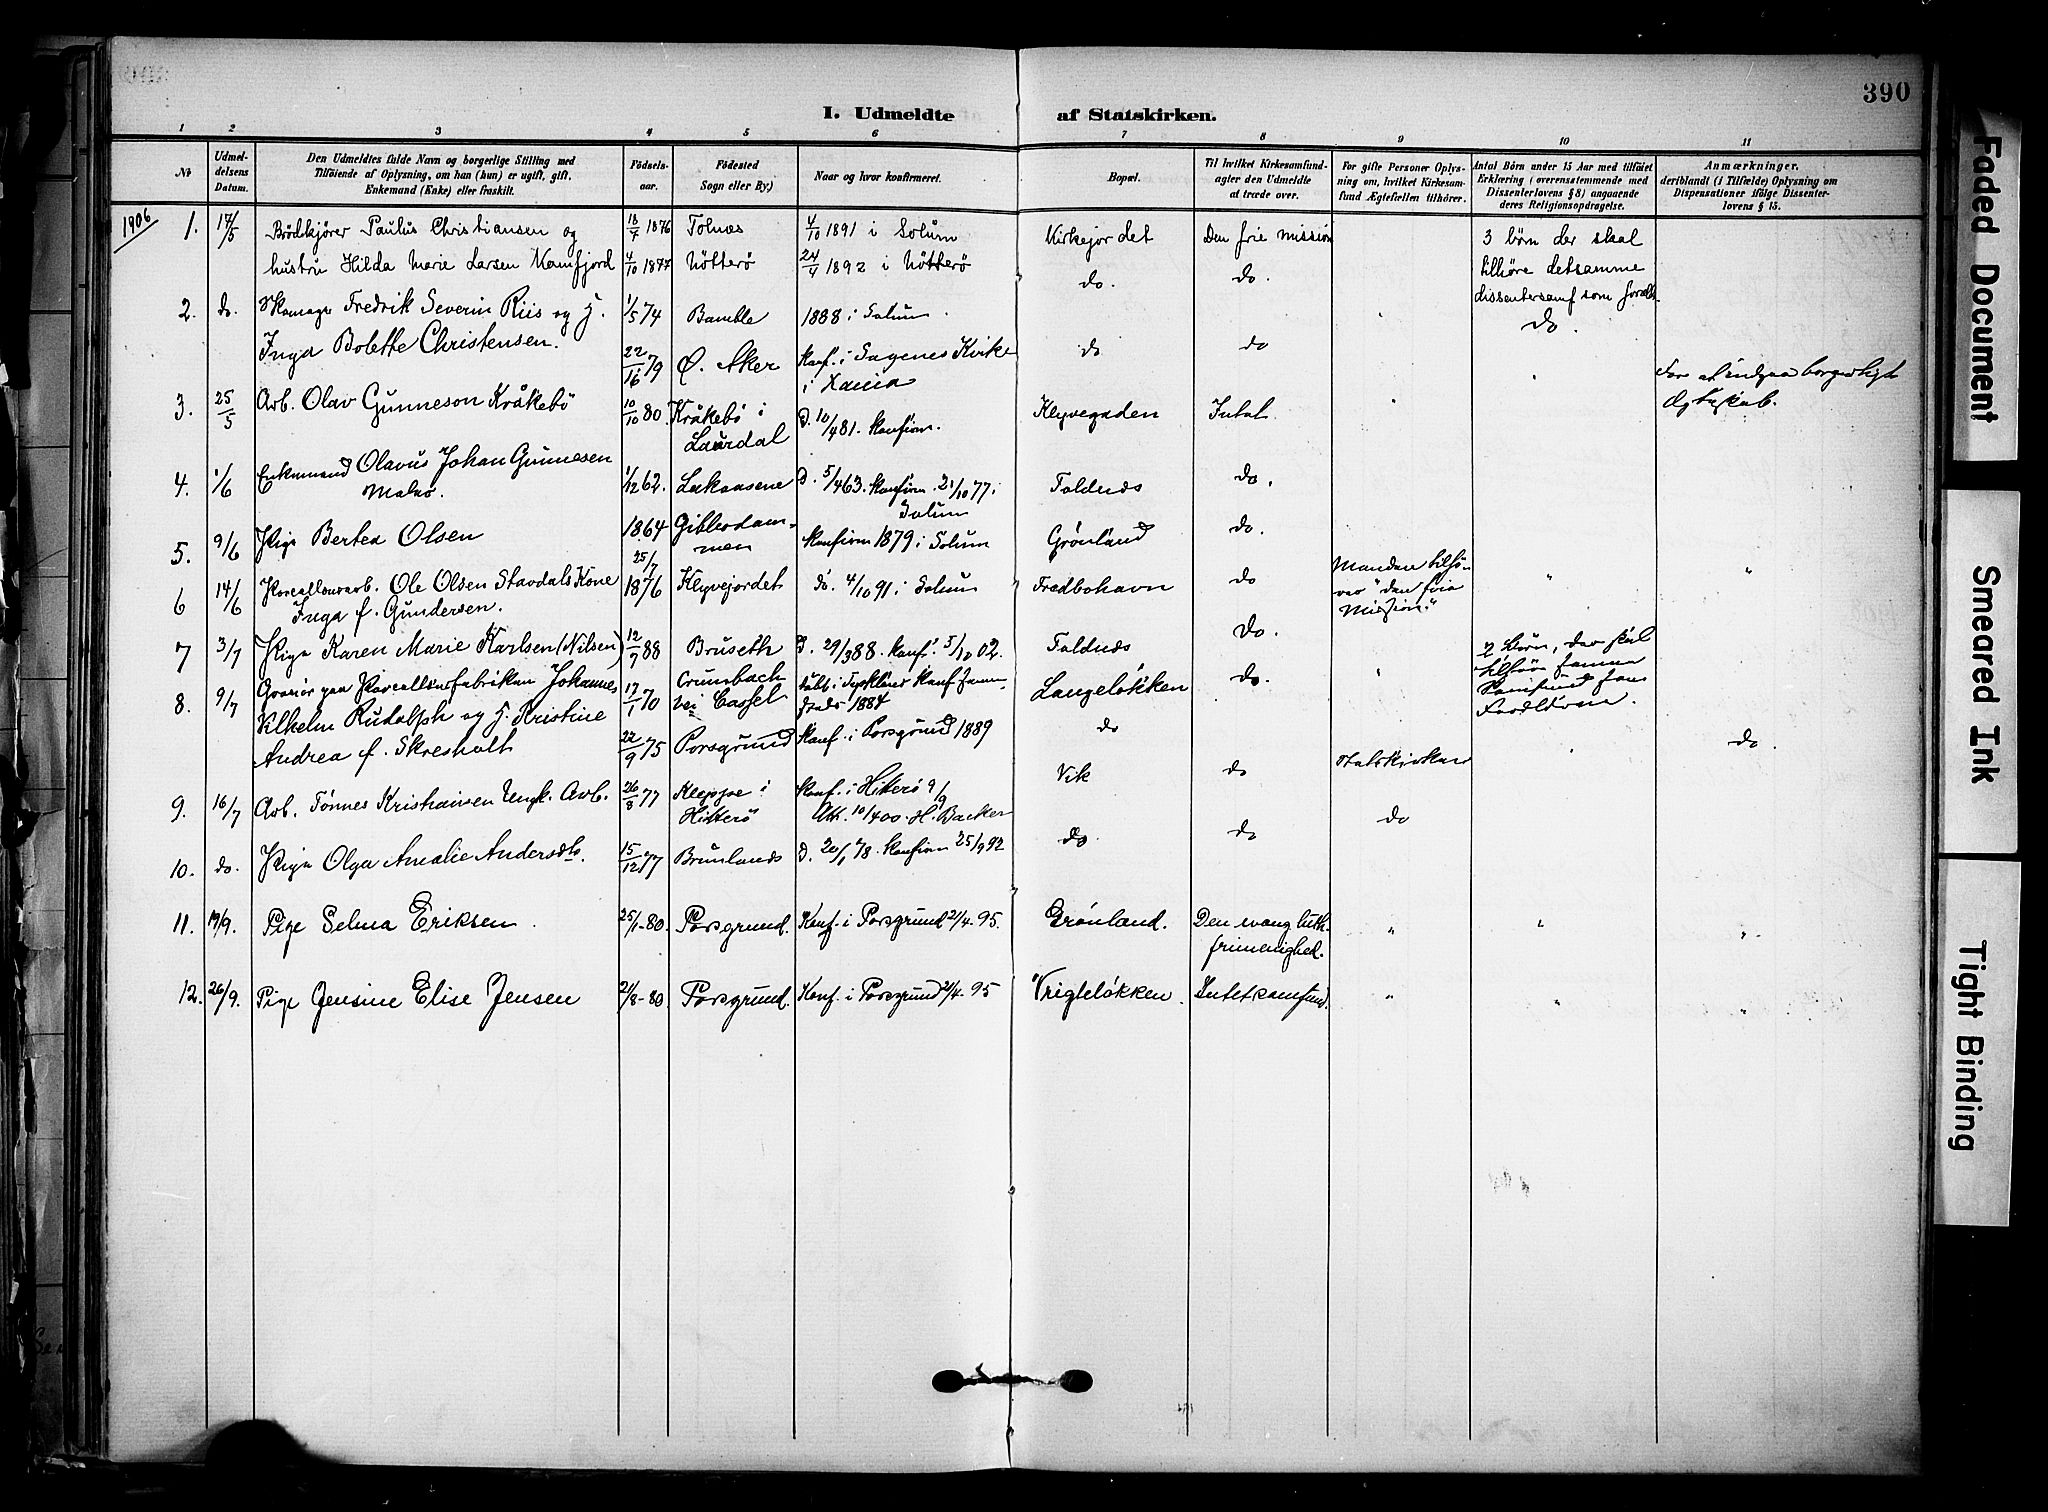 390
I. Udmeldte af Statskirken.
1 2 3 4 5 6 7 8 9 10 11
№
Udmel-
delsens
Datum.
Den Udmeldtes fulde Navn og borgerlige Stilling med
Tilføiende af Oplysning, om han (hun) er ugift, gift,
Enkemand (Enke) eller fraskilt.
Fødsels-
aar.
Fødested
Sogn eller By)
Naar og hvor konfirmeret.
Bopæl.
Til hvilket Kirkesamfund-
agter den Udmeldte
at træde over.
For gifte Personer Oplys-
ning om, hvilket Kirkesam-
fund Ægtefællen tilhører.
Antal Børn under 15 Aar med tilføiet
Erklæring (overensstemmende med
Dissenterlovens § 8) angaaende
deres Religionsopdragelse.
Anmærkninger,
deriblandt (i Tilfælde) Oplysning om
Dispensationer ifølge Dissenter-
lovens § 15.
1906
1. 17/5 Brødkjører Paulus Christiansen og 18/7 1876 Tolnæs 4/10 1891 i Solum Kirkejordet Den frie mission 3 børn der skal
hustru Hilda Marie Larsen Kamfjord 4/10 1877 Nötterö 24/4 1892 i Nötterö do. do. tilhöre detsamme
dissentersamf som foræld.
2. do. Skomager Fredrik Severin Riis og h. 1/5 74 Bamble 1888 i Solum do.
Inga Bolette Christensen. 22/16 79 Ø. Aker konf. i Sagenes Kirke do do
i Xania
3. 25/5 Arb. Olav Gunneson Kråkebö 10/10 80. Kråkebö i D. 10/4 81. konfirm. Klyvegaden Intet For at indgaa borgerligt
Laurdal Ægteskab.
4. 1/6 Enkemand Olavus Johan Gunnesen 1/12 62. D. 5/4 63. konfirm. 21/10 77 i Toldnæs do.
Solum
5. 9/6 Pige Bertea Olsen 1864 konfirm 1879 i Solum Grönland do.
6 14/6 Porcellænsarb. Ole Olsen Stavdals Kone 25/7 1876 Klyvejordet do. 4/10 91 i Solum Fredbohavn do Manden tilhö-
Inga f. Gundersen. rer "den frie
Mission."
7 3/7 Pige Karen Marie Karlsen (Nilsen) 12/9 88 Bruseth D. 29/3 88. konf. 5/10 02. Toldnæs do. 2 Börn, der skal
8. 9/7 Gravör paa Porcellænsfabriken Johannes 17/1 70 Crumbach döbt i Tyskland konf. samme- Langelökken do. tilhöre samme
Vilhelm Rudolph og h. Kristine bei Cassel steds 1884 Samfund som
Forældrene.
Andrea f. Skresholt 22/9 75 Porsgrund konf. i Porsgrund 1889 do
do.
9. 16/7 Arb. Tönnes Kristiansen Ungk. Arb. 26/8 77 Kleppe i konf. i Hitterö 9/9 Vik do Statskirken
Hitterö Att. 10/4 00. H. Backer do
10. do. Pige Olga Amalie Andersdt. 15/12 77 Brunlands D. 20/1 78. konfirm 25/9 92 do. do
11. 19/9. Pige Selma Eriksen 25/1-80. Porsgrund. Konf. i Porsgrund 2/4. 95. Grönland. Den evang. luth. " " "
frimenighed.
12. 26/9. Pige Jensine Elise Jensen 21/8-80 Porsgrund. Konf. i Porsgrund 2/4. 95 Vriglelökken. Intet samfund. " " "
Faded Document
Smeared Ink
Tight Binding